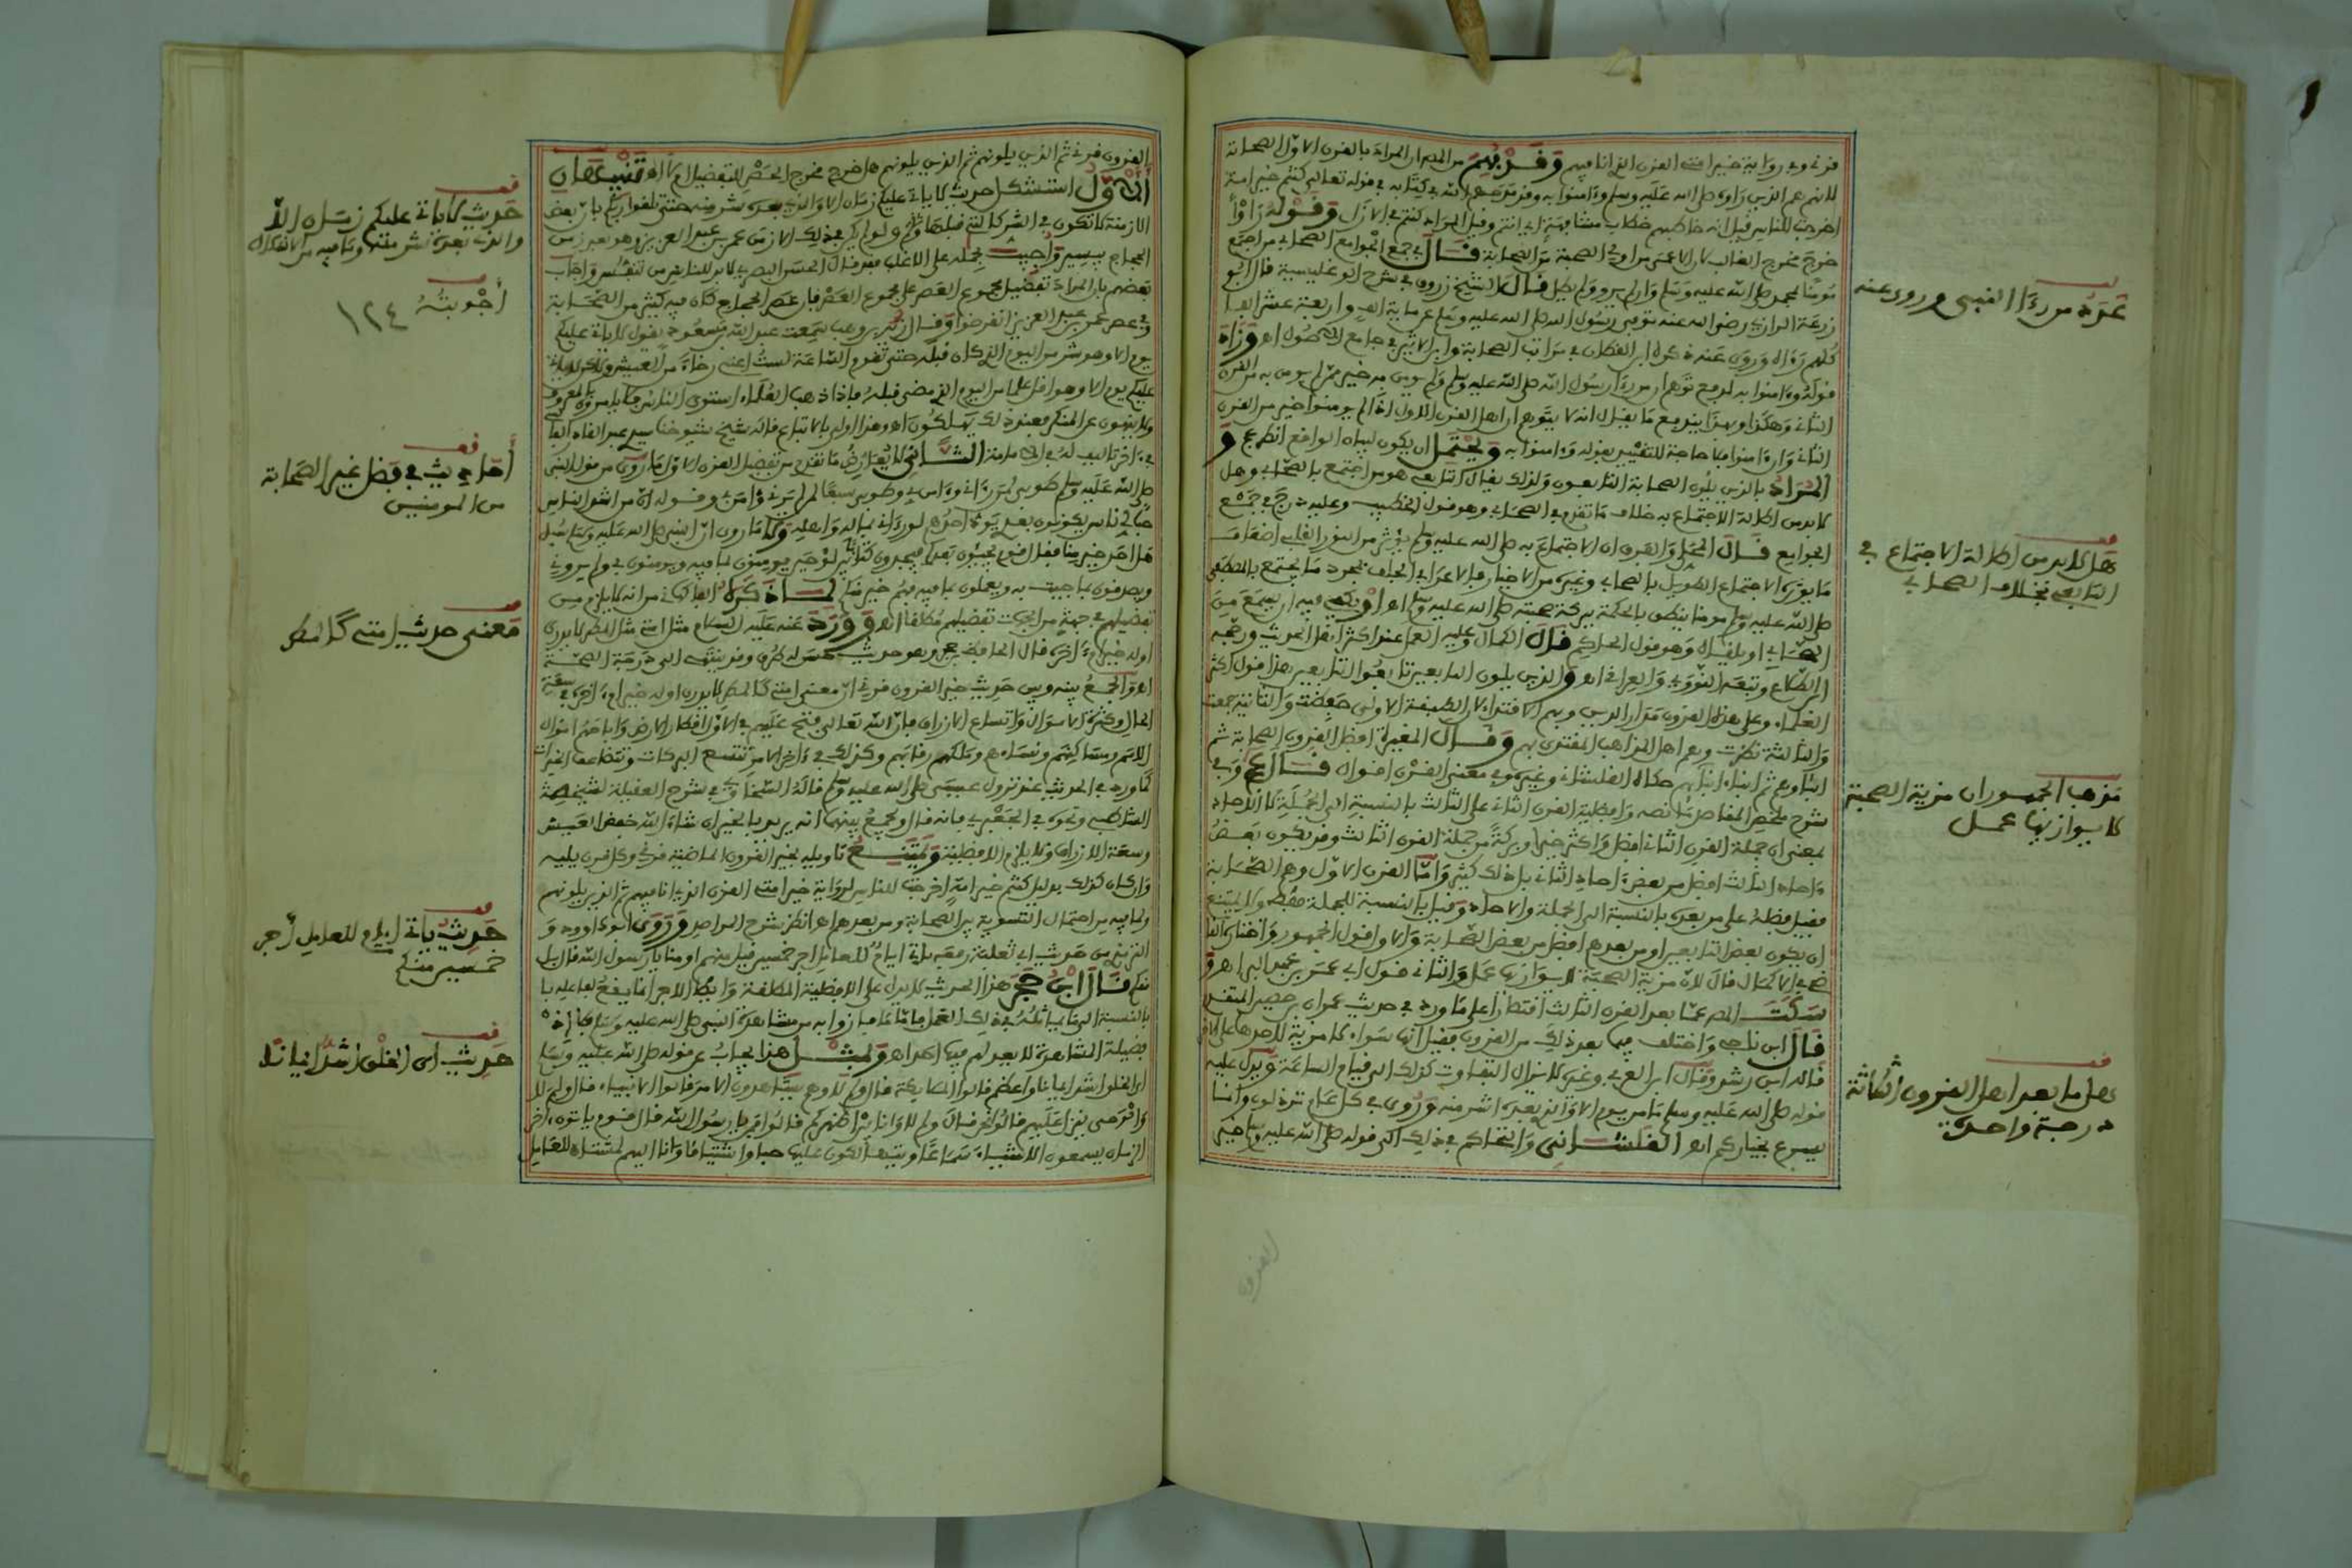 قرني وفي رواية خير امتي القرن الذي انا فيهم وَفُهِمَ من المص ان المراد بالقرن الاول الصحابة
لانهم هم الذين راوه صلى الله عليه وسلم وءامنوا به وقد مدحهم الله في كتابه في قوله تعالى كنتم خير امة
اخرجت للناس قيل انه خاطبهم خطاب مشافهة اي انتم وقيل المراد كنتم في الازل وَقَوْلُهُ رَأَوْا
خرج مخرج الغالب كان الاعمى من اولي الصحبة من الصحابة قَالَ في جمع الجوامع الصحابي من اجتمع
مومنا بمحمد صلى الله عليه وسلم وان لم يرو ولم يطل قال الشيخ زروق في شرح الوغليسية قال ابو
زرعة الرازي رضي الله عنه توفي رسول الله صلى الله عليه وسلم عن مائة الف واربعة عشر الفا
كلهم رءاه وروى عنه ذكره ابن القطان في مراتب الصحابة وابن الاثير في جامع الاصول اه وَزَادَ
قوله وءامنوا به لدفع توهم ان من رءا رسول الله صلى الله عليه وسلم ولم يومن به خير ممن لم يومن به من القرن
الثاني وهكذا وبهذا يندفع ما يقال انه لا يتوهم ان اهل القرن الاول اذا لم يومنوا خير من القرن
الثاني وان ءامنوا فلا حاجة للتقييد بقوله وءامنوا به وَيُحْتَمَل ان يكون لبيان الواقع انظر عج وَ
المُرَادُ بالذين يلون الصحابة التابعون ولذلك يقال التابعي هو من اجتمع بالصحابي وهل
لا بد من اطالة الاجتماع به خلاف ما تقدم في الصحابي وهو قول الخطيب وعليه درج في جمع
الجوامع قَالَ المحلي والفرق ان الاجتماع به صلى الله عليه وسلم يوثر من النور القلبي اضعاف
ما يوثره الاجتماع الطويل بالصحابي وغيره من الاخيار فالاعرابي الجلف بمجرد ما يجتمع بالمصطفى
صلى الله عليه وسلم مومنا ينطق بالحكمة ببركة صحبته صلى الله عليه وسلم اه اوْ يكفي فيه ان يسمع من
الصحابي او يلقاه وهو قول الحاكم قَالَ الكمال وعليه العمل عند اكثر اهل الحديث ورجحه
ابن الصلاح وتبعه النووي والعراقي اه وَالذين يلون التابعين تابعوا التابعين هذا قول اكثر
العلماء وعلى هذه القرون مدار الدين وبهم الاقتداء لان الطبقة الاولى حفظت والثانية جمعت
والثالثة نظرت وهم اهل المذاهب المقتدى بهم وَقَالَ المغيرة افضل القرون الصحابة ثم
ابناوهم ثم ابناء ابنائهم حكاه القلشاني وغيره وفي معنى القرن اقوال قَالَ عج وفي
شرح ملخص المقاصد ما نصه وافضلية القرن الثاني على الثالث بالنسبة الى الجملة لا الاحاد
بمعنى ان جملة القرن الثاني افضل واكثر خيرا وبركة من جملة القرن الثالث وقد يكون بعض
ءاحاد الثالث افضل من بعض ءاحاد الثاني بل ذلك كثير وَامّا القرن الاول وهم الصحابة
فقيل فضله على من بعده بالنسبة الى الجملة والاحاد وقيل بالنسبة للجملة فقط ولا يمتنع
ان يكون بعض التابعين او من بعدهم افضل من بعض الصحابة والاول قول الجمهور واختاره القا
ضي في الاكمال قال لان مزية الصحبة لا يوازيها عمل والثاني قول ابي عمر بن عبد البر اه وَ
سَكَتَ المص عما بعد القرن الثالث اقتصارا على ما ورد في حديث عمران بن حصين المتقدم
قَالَ ابن ناجي واختلف فيما بعد ذلك من القرون فقيل انها سواء لا مزية لاحدها على الاخر
قاله ابن رشد وقال ابن العربي وغيره لا يزال التفاوت كذلك الى قيام الساعة ويدل عليه
قوله صلى الله عليه وسلم ما من يوم الا والذي بعده اشر منه وروي في كل عام ترذلون وانما
يسرع بخياركم اه القلشاني وانتحاكم في ذلك الى قوله صلى الله عليه وسلم خير
القرون
غرة من رءا النبي وروى عنه
هل لا بد من اطالة الاجتماع في
التابعي بخلاف الصحابي
مذهب الجمهور ان مزية الصحبة
لا يوازيها عمل
هل ما بعد اهل القرون الثلاثة
درجة واحدة
القرون قرني ثم الذين يلونهم ثم الذين يلونهم هل خرج مخرج الحصر للتفضيل ام لا اه تَنْبِيهَانِ
الأَوَّل استشكل حديث لا ياتي عليكم زمان الا والذي بعده شر منه حتى تلقوا ربكم بان بعض
الازمنة لا تكون في الشر كالتي قبلها ولو لم يكن في ذلك الا زمن عمر بن عبد العزيز وهو بعد زمن
الحجاج بيسير وَاُجِيبَ بحمله على الاغلب فقد قال الحسن البصري لا بد للناس من تنفيس واجاب
بعضهم بان المراد تفضيل مجموع العصر على مجموع العصر فان عصر الحجاج كان فيه كثير من الصحابة
وفي عصر عمر بن عبد العزيز انقرضوا وقال زيد بن وهب سمعت عبد الله بن مسعود يقول لا ياتي عليكم
يوم الا وهو شر من اليوم الذي كان قبله حتى تقوم الساعة لست اعني رخاء من العيش ولكن لا ياتي
عليكم يوم الا وهو اقل علما من اليوم الذي مضى قبله فاذا ذهب العلماء استوى الناس فلا يامرون بالمعروف
ولا ينهون عن المنكر فعند ذلك يهلكون اه وهذا اولى بالاتباع قاله شيخ شيوخنا سيدي عبد القادر الفا
الثَّاني لا يعارض ما تقدم من تفضيل القرن الاول ما روي من قول النبي
صلى الله عليه وسلم طوبى لمن رءاني وءامن بي وطوبى سبعا لمن لم يرني وءامن بي وقوله ان من اشد الناس
حبا لي ناس يكونون بعدي يود احدهم لو رءاني بماله واهله وكذا ما روي ان النبي صلى الله عليه وسلم سئل
هل احد خير منا فقال قوم يجيئون بعدكم فيجدون كتابا بين لوحين يومنون بما فيه ويومنون بي ولم يروني
ويصدقون بما جئت به ويعملون بما فيه فهم خير منكم لِمَا ذَكَرَهُ الفاكهاني من انه لا يلزم من
تفضيلهم في جهة من الجهات تفضيلهم مطلقا اه وَوَرَدَ عنه عليه السلام مثل امتي مثل المطر لا يدرى
اوله خير ام ءاخره قال الحافظ ابن حجر وهو حديث حسن له طرق وقد ينتهي الى درجة الصحة
اه والجَمْعُ بينه وبين حديث خير القرون قرني ان معنى امتي كالمطر لا يدرى اوله خير ام ءاخره في سعة
الحال وكثرة الاموال واتساع الارزاق فان الله تعالى فتح عليهم في الاول اقطار الارض واباحهم اموال
الامم ومساكنهم ونساءهم وملكهم رقابهم وكذلك في ءاخر الامر تتسع البركات وتتضاعف الخيرات
كما ورد في الحديث عند نزول عيسى صلى الله عليه وسلم قاله السخاوي في شرح العقيلة لشيخه
الشاطبي ونحوه في الجعبري فانه قال ويجمع بينهما انه يريد بالخير ان شاء الله خفض العيش
وسعة الارزاق ولا يلزم الافضلية وَيَمْتَنِعُ تاويله بخير القرون الماضية قرني وكل قرن يليه
وان كان كذلك بدليل كنتم خير امة اخرجت للناس لرواية خير امتي القرن الذي انا فيهم ثم الذين يلونهم
ولما فيه من احتمال التسوية بين الصحابة ومن بعدهم اه انظر شرح المراصد وَرَوَى ابو داوود وَ
الترمذي من حديث ابي ثعلبة رفعه ياتي ايام للعامل اجر خمسين قيل منهم او منا يا رسول الله قال بل
منكم قَالَ ابْنُ حَجَر هذا الحديث لا يدل على الافضلية المطلقة وايضا الاجر انما يقع تفاضله با
بالنسبة الى ما يماثله في ذلك العمل فاما ما فاز به من مشاهدة النبي صلى الله عليه وسلم من زيادة
فضيلة المشاهدة لا يعدلهم فيها احد اه وَبِمِثْلِ هذا يجاب عن قوله صلى الله عليه وسلم
اي الخلق اشد ايمانا واعظم قالوا الملائكة قال وكيف لا وهم يشاهدون الامر قالوا الانبياء قال وكيف لا
والوحي ينزل عليهم قالوا فنحن قال وكيف لا وانا بين اظهركم قالوا فمن يا رسول الله قال قوم ياتون ءاخر
الزمان يسمعون الاشياء سماعا
حديث لا ياتي عليكم زمان الا
والذي بعده شر منه وما فيه من الاشكال
أجوبته ١٢٤
أحاديث في فضل غير الصحابة
من المومنين
معنى حديث امتي كالمطر
حديث ياتي ايام للعامل اجر
خمسين منكم
حديث اي الخلق اشد ايمانا